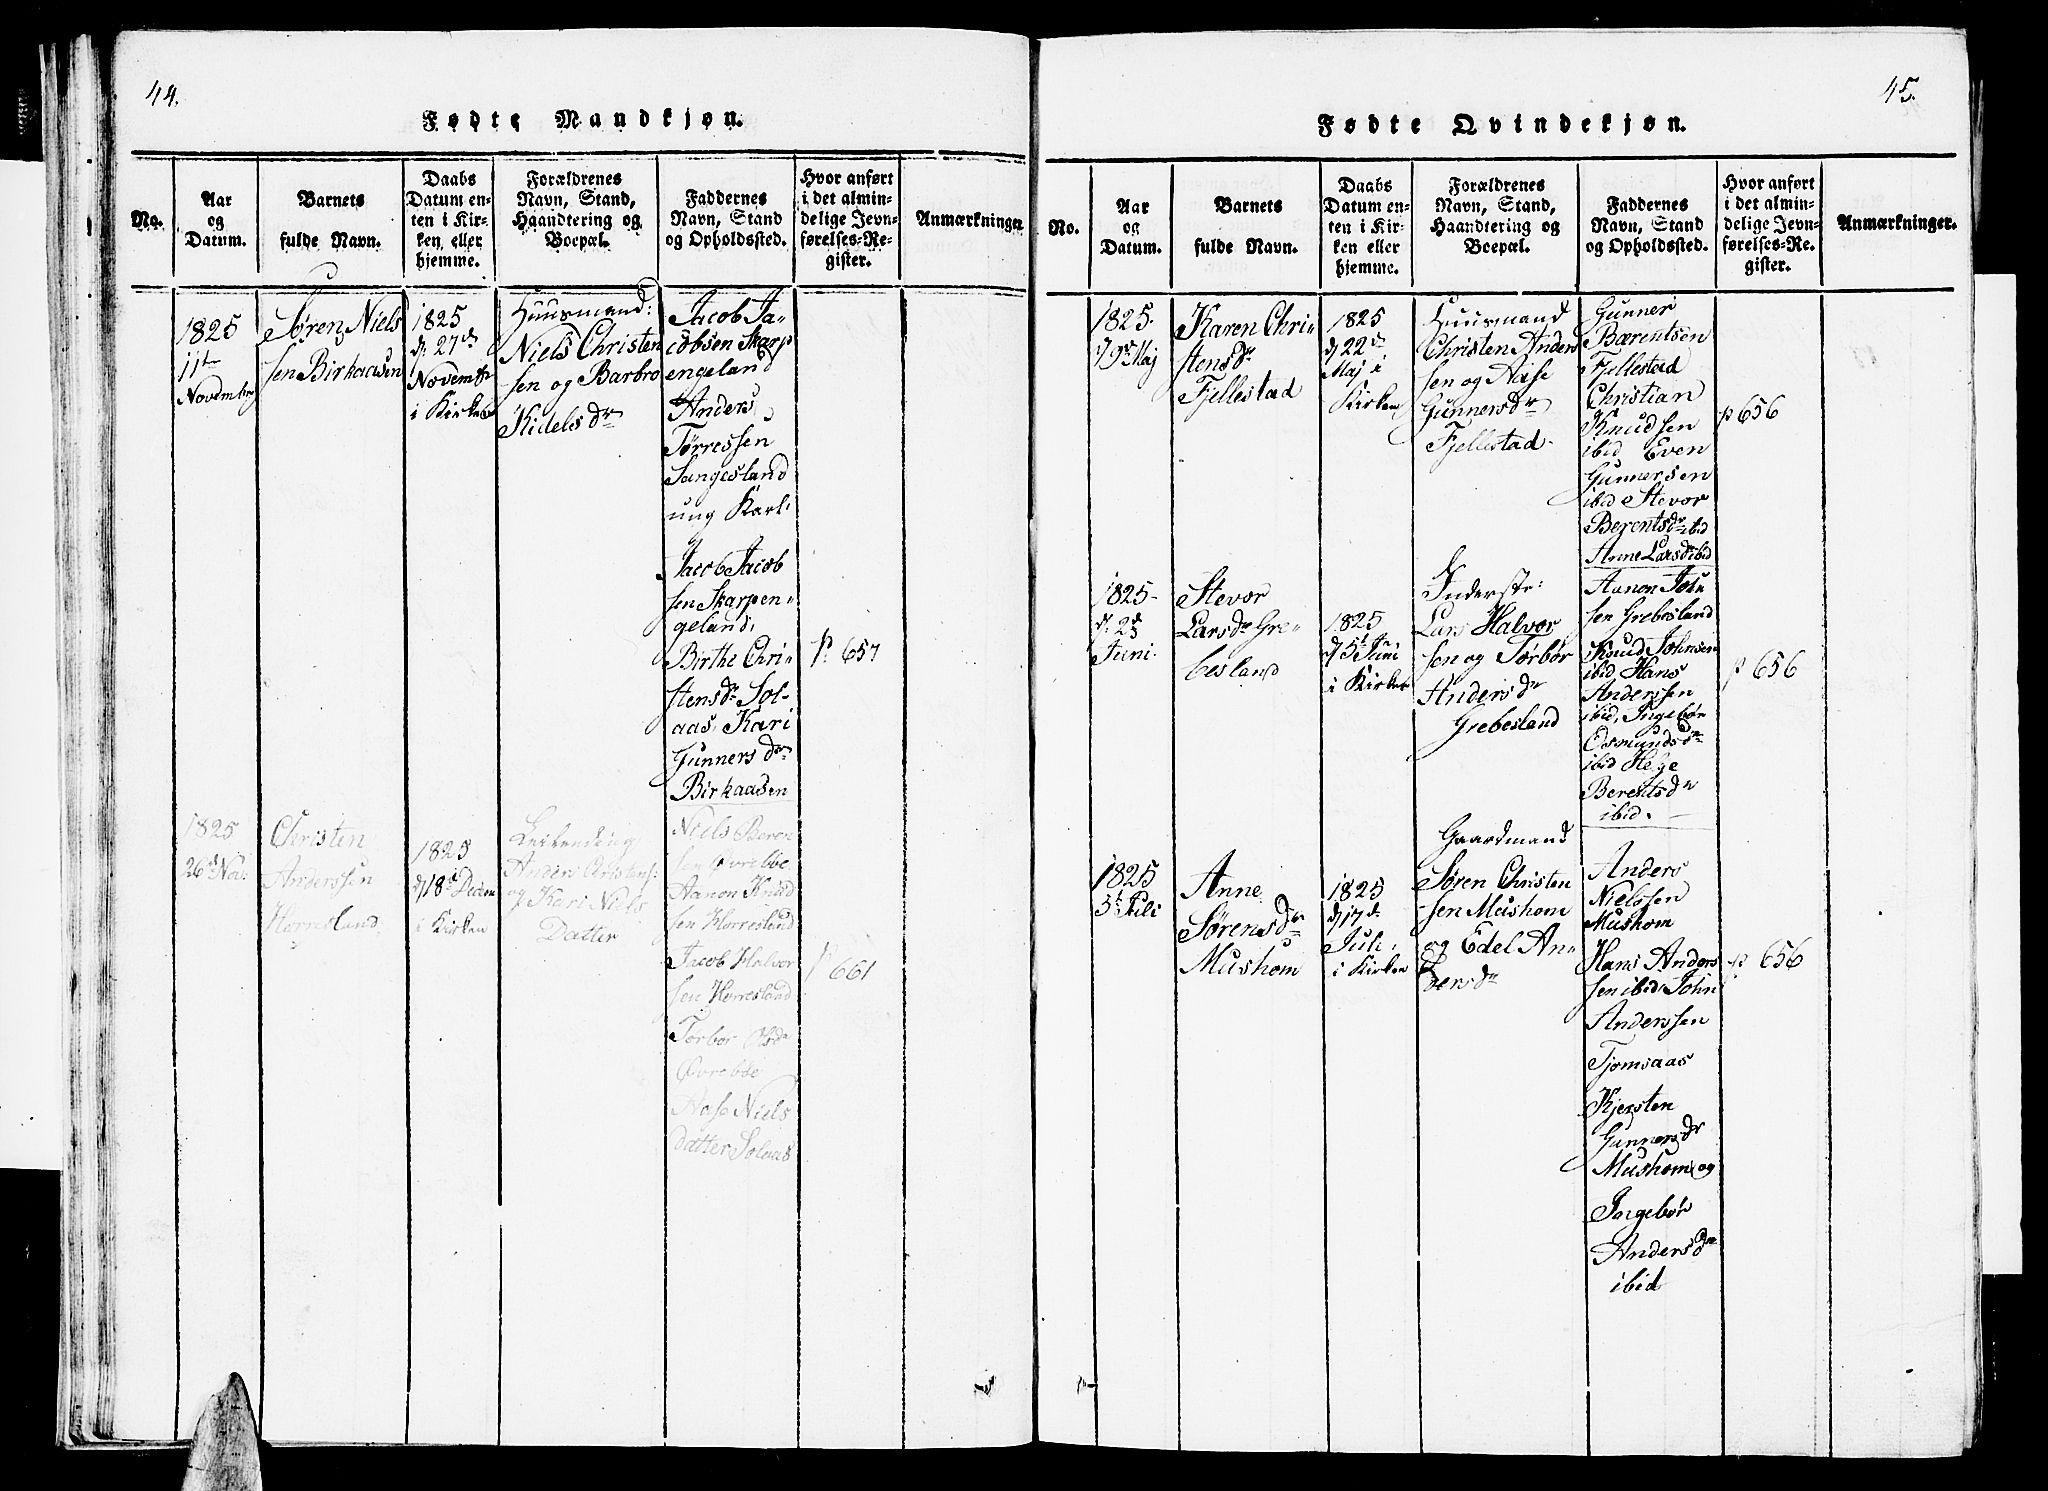 44.
Fødte Mandkjøn.
No.
Aar
og
Datum.
Barnets
fulde Navn.
Daabs
Datum en-
ten i Kir-
ken eller
hjemme.
Forældrenes
Navn, Stand,
Haandtering og
Boepæl.
Faddernes
Navn, Stand
og Opholdssted.
Hvor anført
i det almin-
delige Jevn-
førelses-Re-
gister.
Anmærkninger.
1825
11te
Novembr
Søren Niels
sen Birkaasen
1825
d. 27de
Novembr
i Kirken
Huusmand:
Niels Christen
sen og Barbro
Kidelsdr
Jacob Ja-
cobsen Skarp
engeland
Anders
Tørressen
Sangesland
ung Karl.
Jacob Jacob
sen Skarpen-
geland,
Birthe Chri-
stensdr Sol-
aas, Kari
Gunnersdr
Birkaasen
p. 657
1825
26de Nov:
Christen
Anderssen
Horresland
1825
d 18de Decem
i Kirken
Leilending
Anders Christens:
og Kari Niels
Datter
Niels Beren
sen Øvrebøe
Aanon Knud
sen Horresland
Jacob Halvor
sen Horresland
Torbor Olsdr
Øvrebøe
Aase Niels
datter Solaas
p 661
45.
Fødte Qvindekjøn.
No.
Aar
og
Datum.
Barnets
fulde Navn.
Daabs
Datum en-
ten i Kir-
ken eller
hjemme.
Forældrenes
Navn, Stand,
Haandtering og
Boepæl.
Faddernes
Navn, Stand
og Opholdssted.
Hvor anført
i det almin-
delige Jevn-
førelses-Re-
gister.
Anmærkninger.
1825.
d 9de Maj
Karen Chri-
stensdr
Fjellestad
1825
d 22de
Maj i
Kirken
Huusmand
Christen Anders
sen og Aase
Gunnersdr
Fjellestad.
Gunner
Bærentsen
Fjellestad
Christian
Knudsen
ibid Even
Gunnersen
ibid Stevor
Berentsdr ibid
Anne Larsdr ibid
p 656
1825
d. 2de
Juni.
Stevor
Larsdr Gre-
besland
1825
d 5te Juni
i Kirken
Inderste:
Lars Halvor
sen og Torbør
Andersdr
Grebesland
Aanon John
sen Grebesland
Knud Johnsen
ibid Hans
Anderssen
ibid, Ingebør
Osmundsdr
ibid Hege
Berentsdr
ibid.
p 656
1825
3de Juli
Anne
Sørensdr
Mushom
1825
d 17de
Juli,
i Kirken
Gaardmand
Søren Christen
sen Mushom
og Edel An-
dersdr
Anders
Nielssen
Mushom
Hans Anders
sen ibid, John
Anderssen
Tjomsaas
Kjersten
Gunnersdr
Mushom og
Ingebør
Andersdr
ibid
p 656